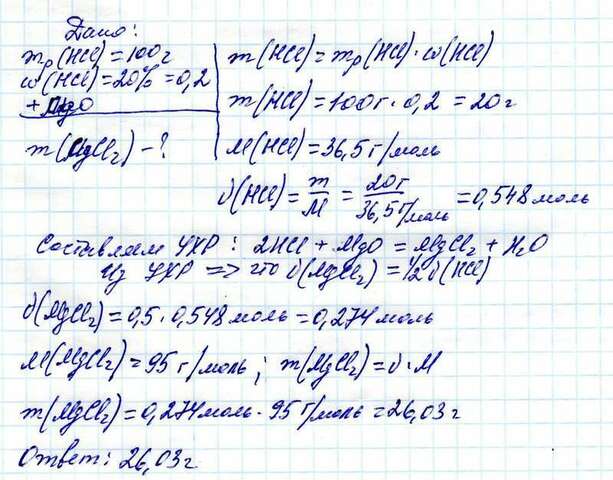 Дано:
mр(HCl)=100г
ω(HCl)=20%=0,2
+MgO
m(MgCl₂)-?
m(HCl)=mр(HCl)·ω(HCl)
m(HCl)=100г·0,2=20г
M(HCl)=36,5г/моль
υ(HCl)=m/M=20г/36,5г/моль=0,548моль
Составляем УХР: 2HCl+MgO=MgCl₂+H₂O
Из УХР => что υ(MgCl₂)=1/2υ(HCl)
υ(MgCl₂)=0,5·0,548моль=0,274моль
M(MgCl₂)=95г/моль; m(MgCl₂)=υ·M
m(MgCl₂)=0,274моль·95г/моль=26,03г
Ответ: 26,03г